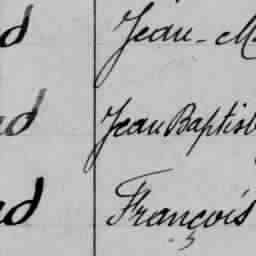 d Jean-M
d Jean Baptist
d François